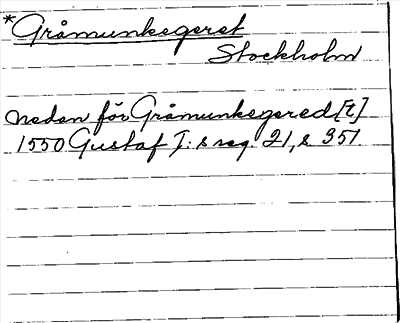 *Gråmunkegeret
Stockholm
nedan för Gråmunkegered[t]
1550 Gustaf I:s reg. 21, s. 351